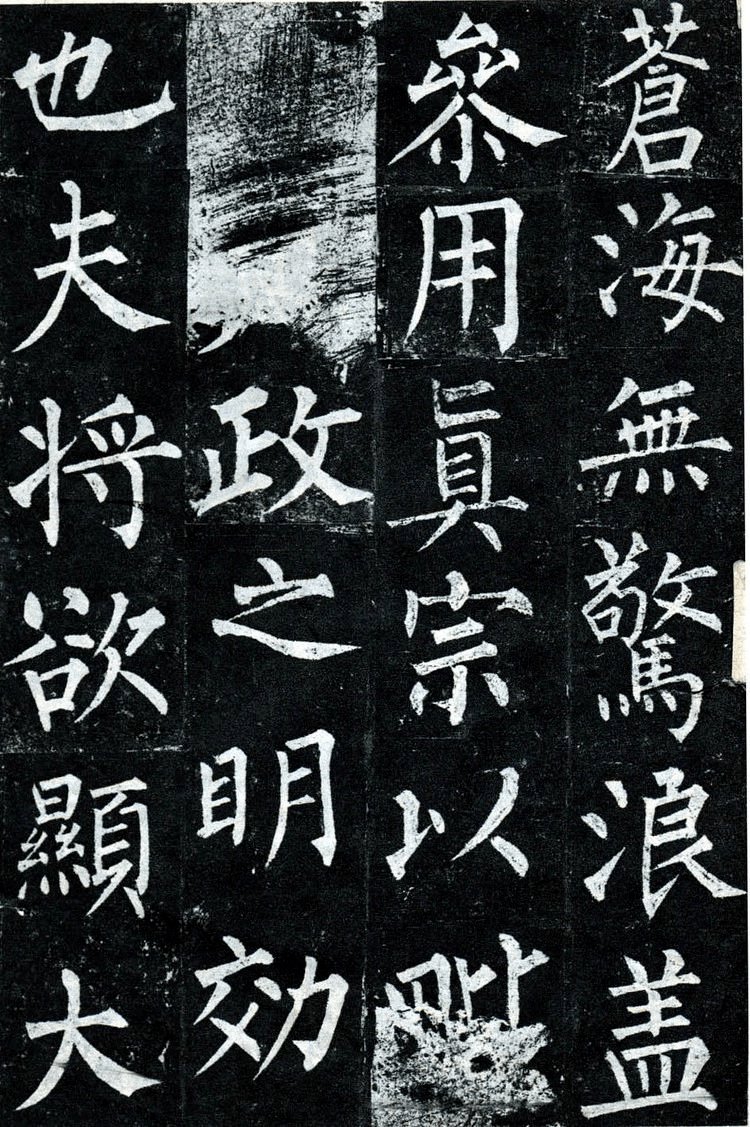 蒼海無驚浪盖
叅用眞宗以
政之明効
也夫将欲顯大